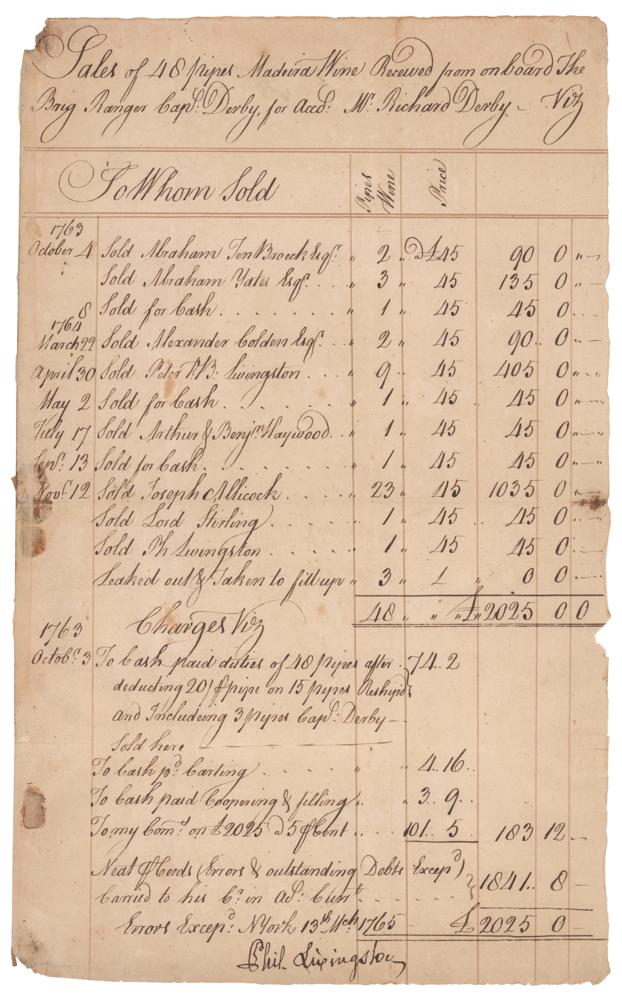 Sales of 48 pipes Madeira Wine Received from on board The
Brig Ranger Capt. Derby, for Acct. Mr. Richard Derby - Viz
To Whom Sold Pipes Wine Price
1763
October 4 Sold Abraham Ten Broeck Esqr. " 2 " @ £45 90 0 "
Sold Abraham Yates Esqr. " 3 " 45 135 0 "
8 Sold for Cash " 1 " 45 45 0
1764
March 22 Sold Alexander Colden Esqr. " 2 " 45 90 0
April 30 Sold Peter V. B. Livingston " 9 " 45 405 0
May 2 Sold for Cash " 1 " 45 45 0
July 17 Sold Arthur & Benjn. Haywood " 1 " 45 45 0
Sepr. 13 Sold for Cash " 1 " 45 45 0
Novr. 12 Sold Joseph Allicock " 23 " 45 1035 0
Sold Lord Stirling " 1 " 45 45 0
Sold Ph Livingston " 1 " 45 45 0
Leaked out & Taken to fill up " 3 " 0 0
48 " " £ 2025 0 0
Charges Viz
1763
Octobr. 3 To Cash paid duties of 48 pipes after 74 .. 2
deducting 20/ ⅌ pipe on 15 pipes Reshipd
and Including 3 pipes Capt. Derby -
Sold here
To Cash pd. Carting 4 .. 16
To Cash paid Coopering & filling 3 .. 9
To my Comn. on £2025 @ 5 ⅌ Cent 101 .. 5 183 12 -
Neat ⅌ceeds (Errors & outstanding Debts Exceptd)
Carried to his Ct. in Act. Curnt. 1841 .. 8 -
Errors Exceptd. NYork 13th Mch 1765 - £ 2025 0 -
Phil. Livingston